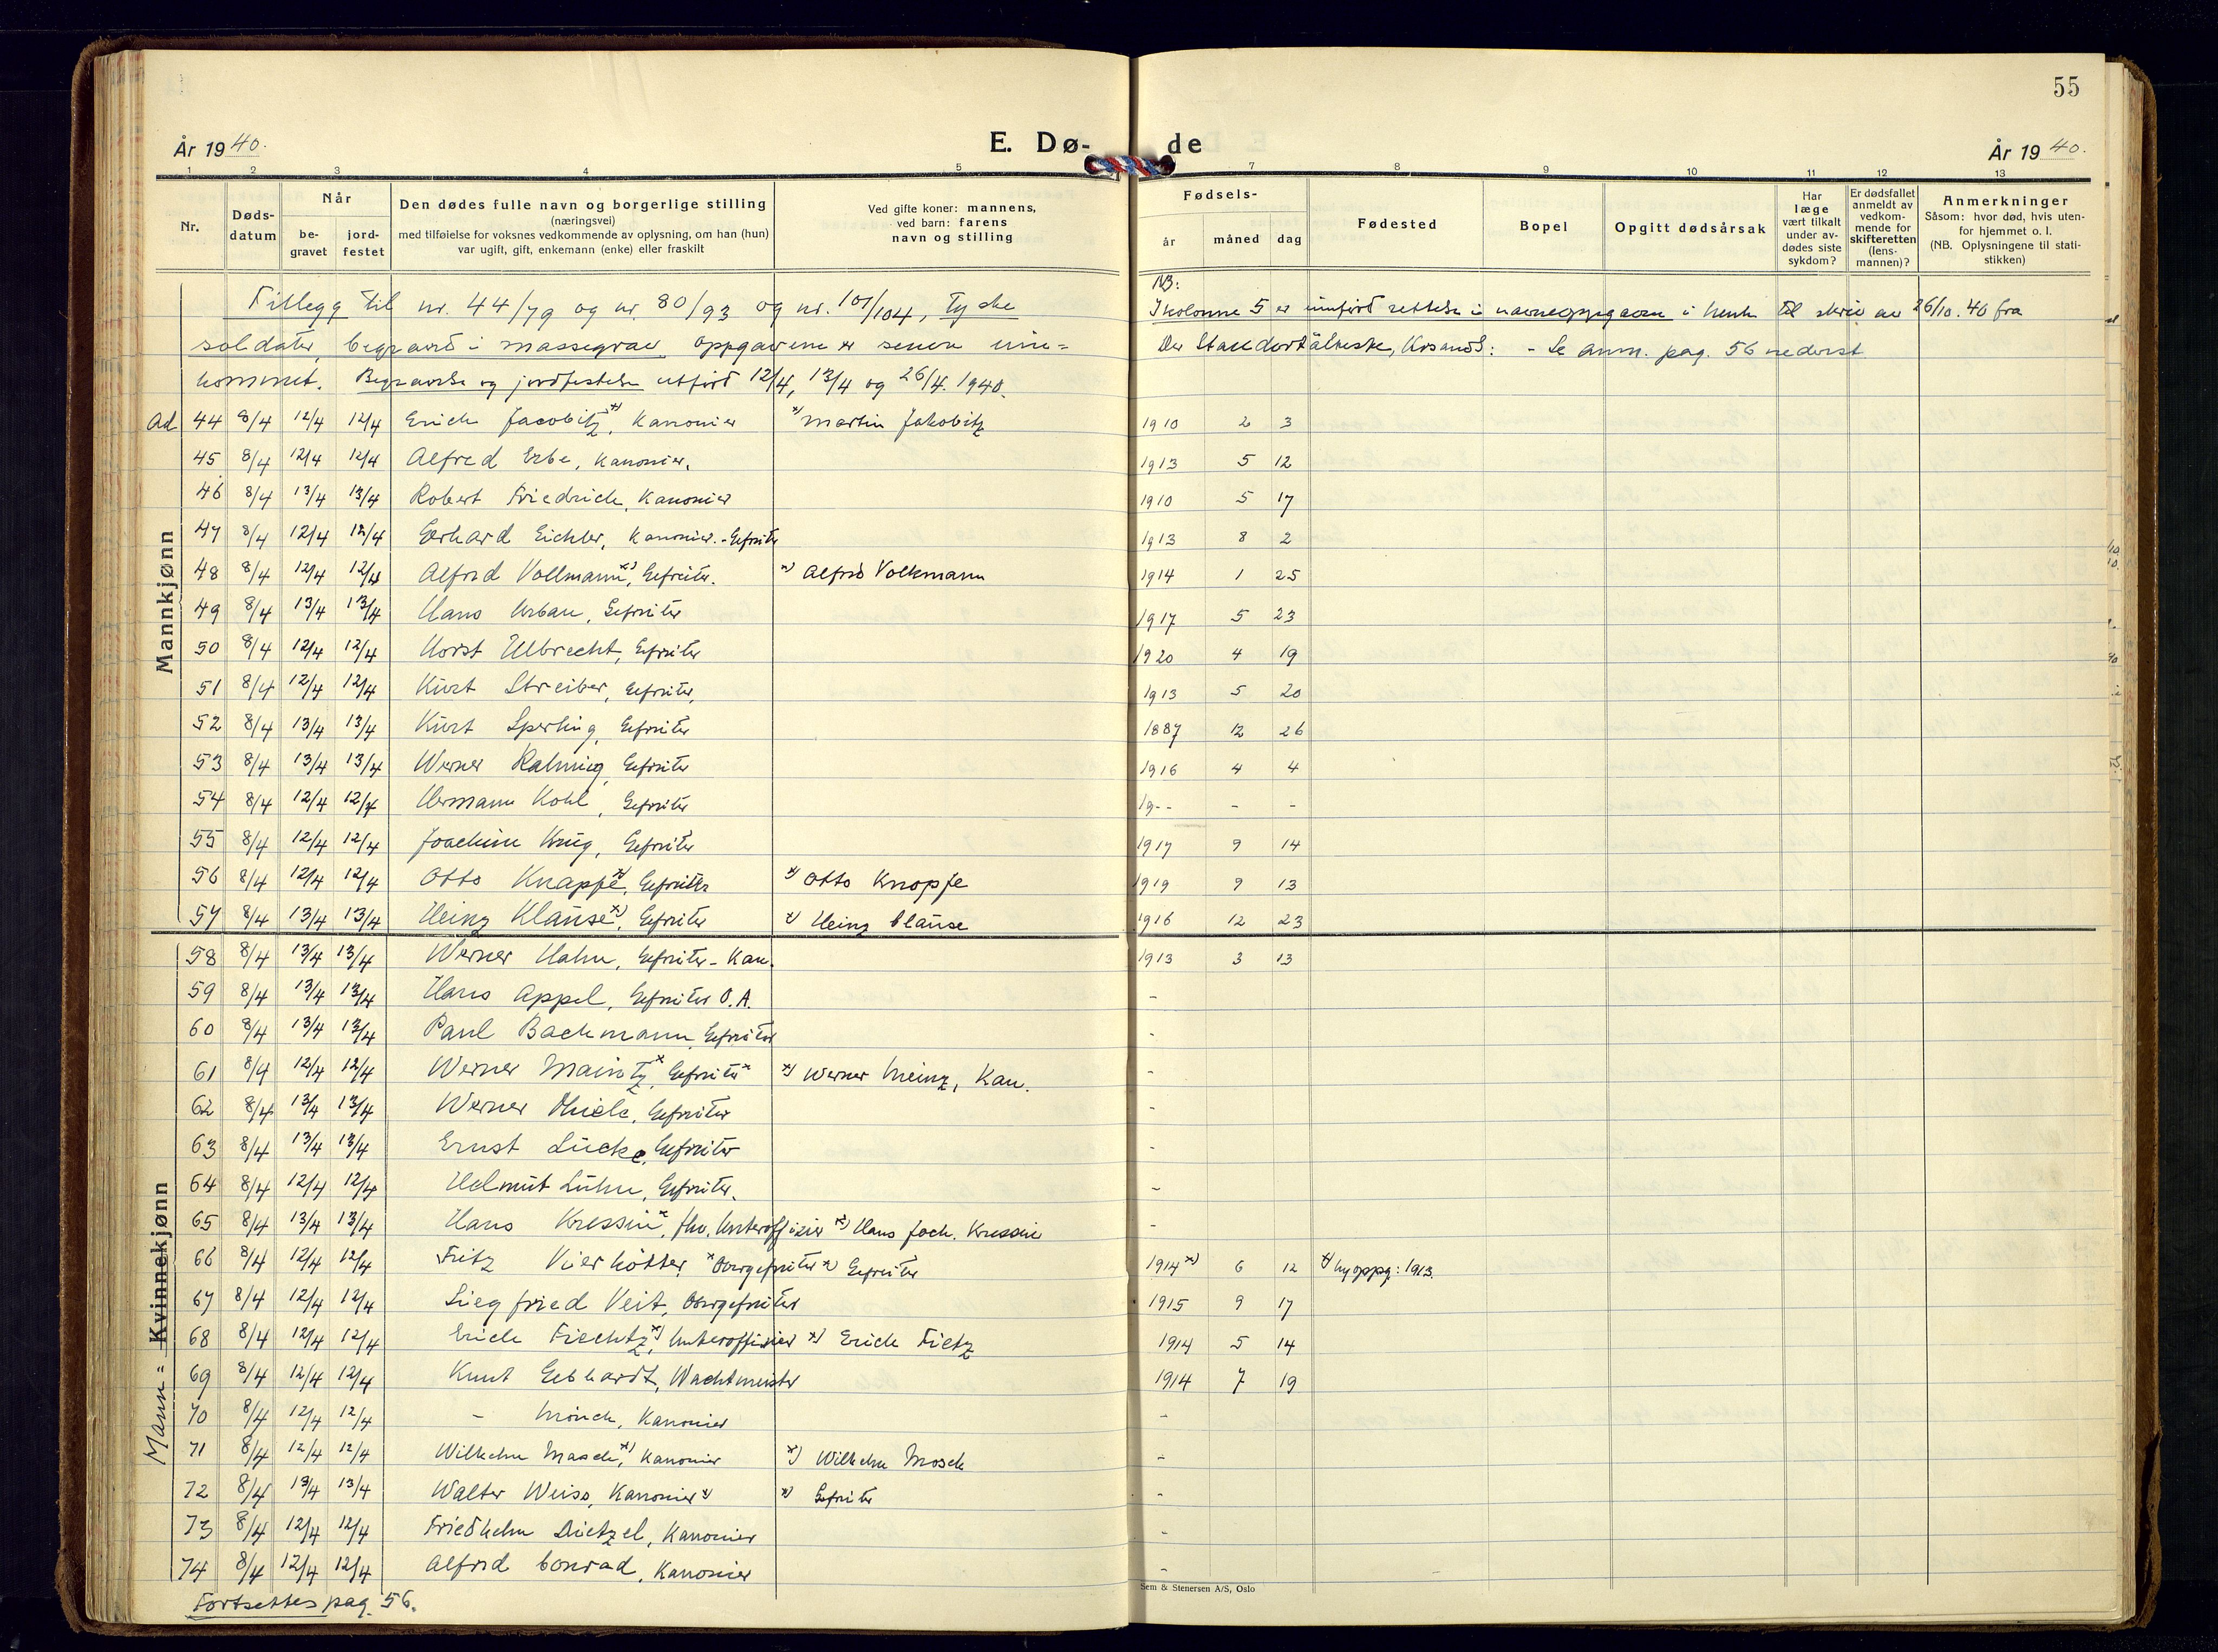 55
År 1940. E. Dø- de År 1940.
1 2 3 4 5 7 8 9 10 11 12 13
Nr. Døds-datum Når be-gravet jord-festet Den dødes fulle navn og borgerlige stilling (næringsvei) med tilføielse for voksnes vedkommende av oplysning, om han (hun) var ugift, gift, enkemann (enke) eller fraskilt Ved gifte koner: mannens, ved barn: farens navn og stilling Fødsels- år måned dag Fødested Bopel Opgitt dødsårsak Har læge vært tilkalt under av-dødes siste sykdom? Er dødsfallet anmeldt av vedkom-mende for skifteretten (lens-mannen)? Anmerkninger Såsom: hvor død, hvis uten-for hjemmet o. l. (NB. Oplysningene til stati-stikken)
Tillegg til nr. 44/79 og nr. 80/93 og nr. 101/104, tyske
soldater, begravd i massegrav, oppgavene er senere inn-
kommet. Begravelse og jordfestelse utført 12/4, 13/4 og 26/4. 1940.
NB:
I kolonne 5 er innført rettelse i navneoppgaven i henh. til skriv av 26/10. 40 fra
Der Standortälteste, Krsand S: - Se anm. pag. 56 nederst
Mannkjønn
Ad 44 8/4 12/4 12/4 Erich Jacobitz x), Kanonier x) Martin Jakobitz 1910 2 3
45 8/4 12/4 12/4 Alfred Erbe, Kanonier. 1913 5 12
46 8/4 13/4 13/4 Robert Friedrich, Kanonier 1910 5 17
47 8/4 12/4 12/4 Gerhard Eichler, Kanonier.-Gefreiter 1913 8 2
48 8/4 12/4 12/4 Alfred Vollmann x), Gefreiter. x) Alfred Volkmann 1914 1 25
49 8/4 13/4 13/4 Hans Urban, Gefreiter 1917 5 23
50 8/4 12/4 12/4 Horst Ulbrecht, Gefreiter 1920 4 19
51 8/4 12/4 12/4 Kurt Streiber, Gefreiter, 1913 5 20
52 8/4 13/4 13/4 Kurt Sperling, Gefreiter 1887 12 26
53 8/4 13/4 13/4 Werner Rahmig, Gefreiter 1916 4 4
54 8/4 12/4 12/4 Hermann Kohl, Gefreiter 19-- - -
55 8/4 12/4 12/4 Joachim Krug, Gefreiter 1917 9 14
56 8/4 12/4 12/4 Otto Knappe x), Gefreiter x) Otto Knopfe 1919 9 13
57 8/4 13/4 13/4 Heinz Klause x), Gefreiter x) Heinz Clause 1916 12 23
Mann= Kvinnekjønn
58 8/4 13/4 13/4 Werner Hahn, Gefreiter - Kan. 1913 3 13
59 8/4 13/4 13/4 Hans Appel, Gefreiter O.A. -
60 8/4 13/4 13/4 Paul Bachmann, Gefreiter -
61 8/4 12/4 12/4 Werner Maintz x, Gefreiter x x) Werner Meinz, Kan. -
62 8/4 13/4 13/4 Werner Thiele, Gefreiter -
63 8/4 13/4 13/4 Ernst Lücke, Gefreiter -
64 8/4 12/4 12/4 Helmut Lühn, Gefreiter. -
65 8/4 13/4 13/4 Hans Kressin x, Unteroffizier x) Hans Joch. Kressin -
66 8/4 12/4 12/4 Fritz Vierkötter x Obergefreiter x) Gefreiter 1914 x) 6 12 x) ny oppg: 1913.
67 8/4 12/4 12/4 Siegfried Veit, Obergefreiter 1915 9 17
68 8/4 12/4 12/4 Erich Fischtz x), Unteroffizier x) Erich Fietz 1914 5 14
69 8/4 12/4 12/4 Kurt Gebhardt, Wachtmeister 1914 7 19
70 8/4 12/4 12/4 - Mönch, Kanonier -
71 8/4 12/4 12/4 Wilhelm Masch x), Kanonier x) Wilhelm Mosch -
72 8/4 13/4 13/4 Walter Weiss, Kanonier x) x) Gefreiter -
73 8/4 12/4 12/4 Friedhelm Dietzel, Kanonier -
74 8/4 12/4 12/4 Alfred Conrad, Kanonier -
Sem & Stenersen A/S, Oslo
Fortsettes pag. 56.